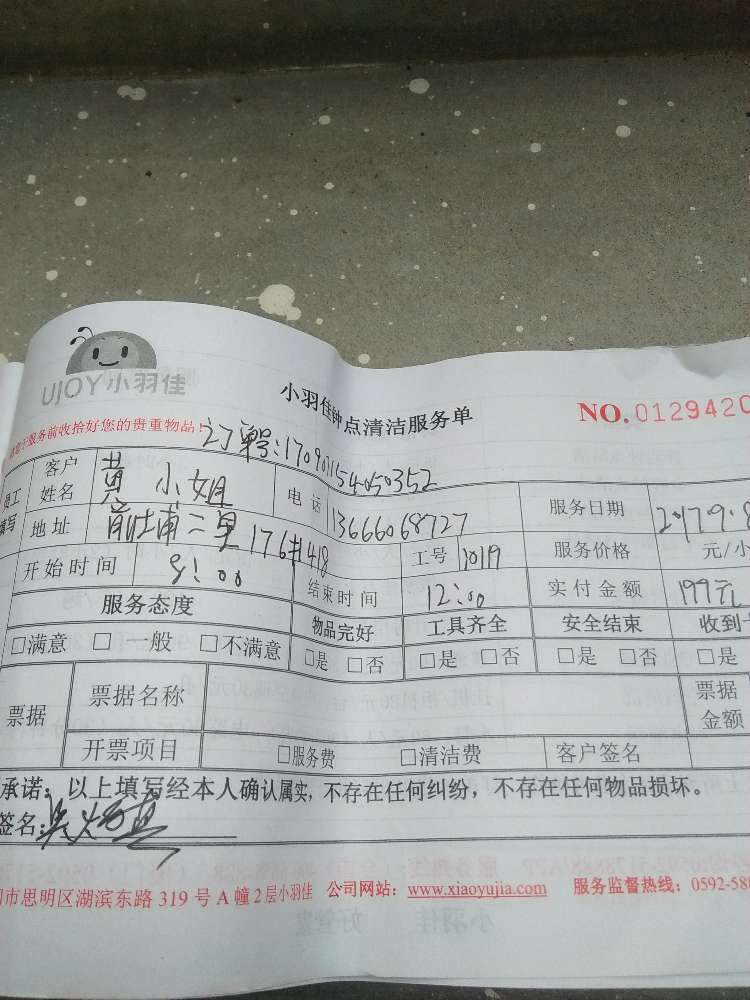 UJOY小羽佳
小羽佳钟点清洁服务单
NO.0129420
服务前收拾好您的贵重物品!
订单号:170901154050352
员工填写 客户姓名 黄小姐 电话 13666068727 服务日期 2017.9.8
地址 前埔二里176#418 工号 1019 服务价格 元/小
开始时间 8:00 结束时间 12:00 实付金额 199元
服务态度 物品完好 工具齐全 安全结束 收到
□满意 □一般 □不满意 □是 □否 □是 □否 □是 □否 □是
票据 票据名称 票据金额
开票项目 □服务费 □清洁费 客户签名
承诺:以上填写经本人确认属实,不存在任何纠纷,不存在任何物品损坏。
签名:
市思明区湖滨东路 319 号 A 幢 2 层小羽佳 公司网站:www.xiaoyujia.com 服务监督热线:0592-588